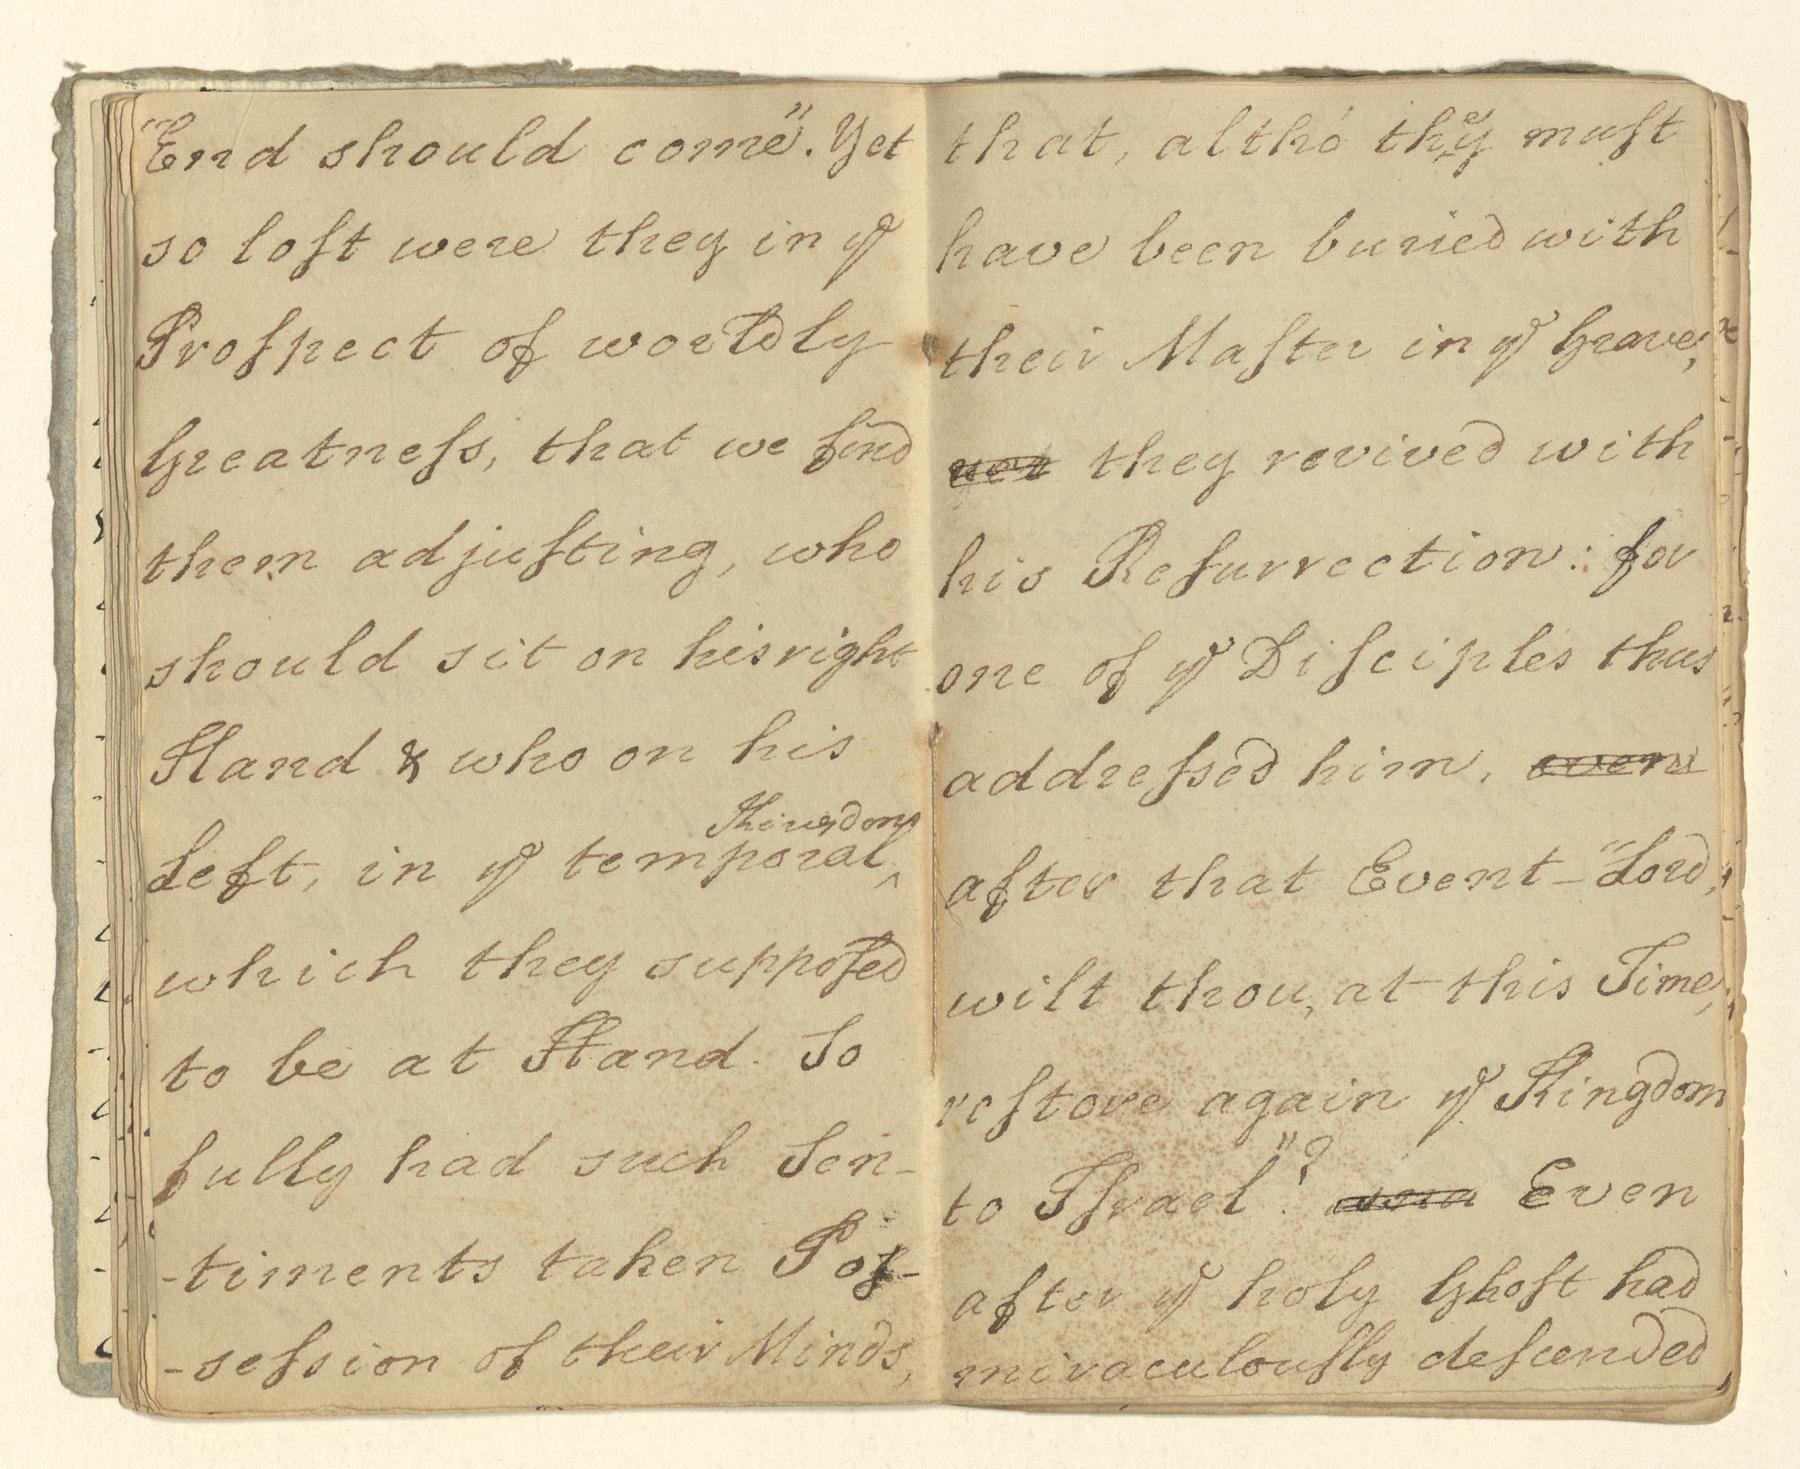 "End should come". Yet
so lost were they in yᵉ
Prospect of worldly
Greatness, that we find
them adjusting, who
should sit on his right
Hand & who on his
Kingdom
Left, in yᵉ temporal ^
which they supposed
to be at Hand. So
fully had such Sen-
-timents taken Pos-
-session of their Minds,
that, altho' they must
have been buried with
their Master in yᵉ Grave,
yet they revived with
his Resurrection: for
one of yᵉ Disciples thus
addressed him, even
after that Event – "Lord,
wilt thou, at this Time,
restore again yᵉ Kingdom
to Israel"? Even
after yᵉ holy Ghost had
miraculously descended